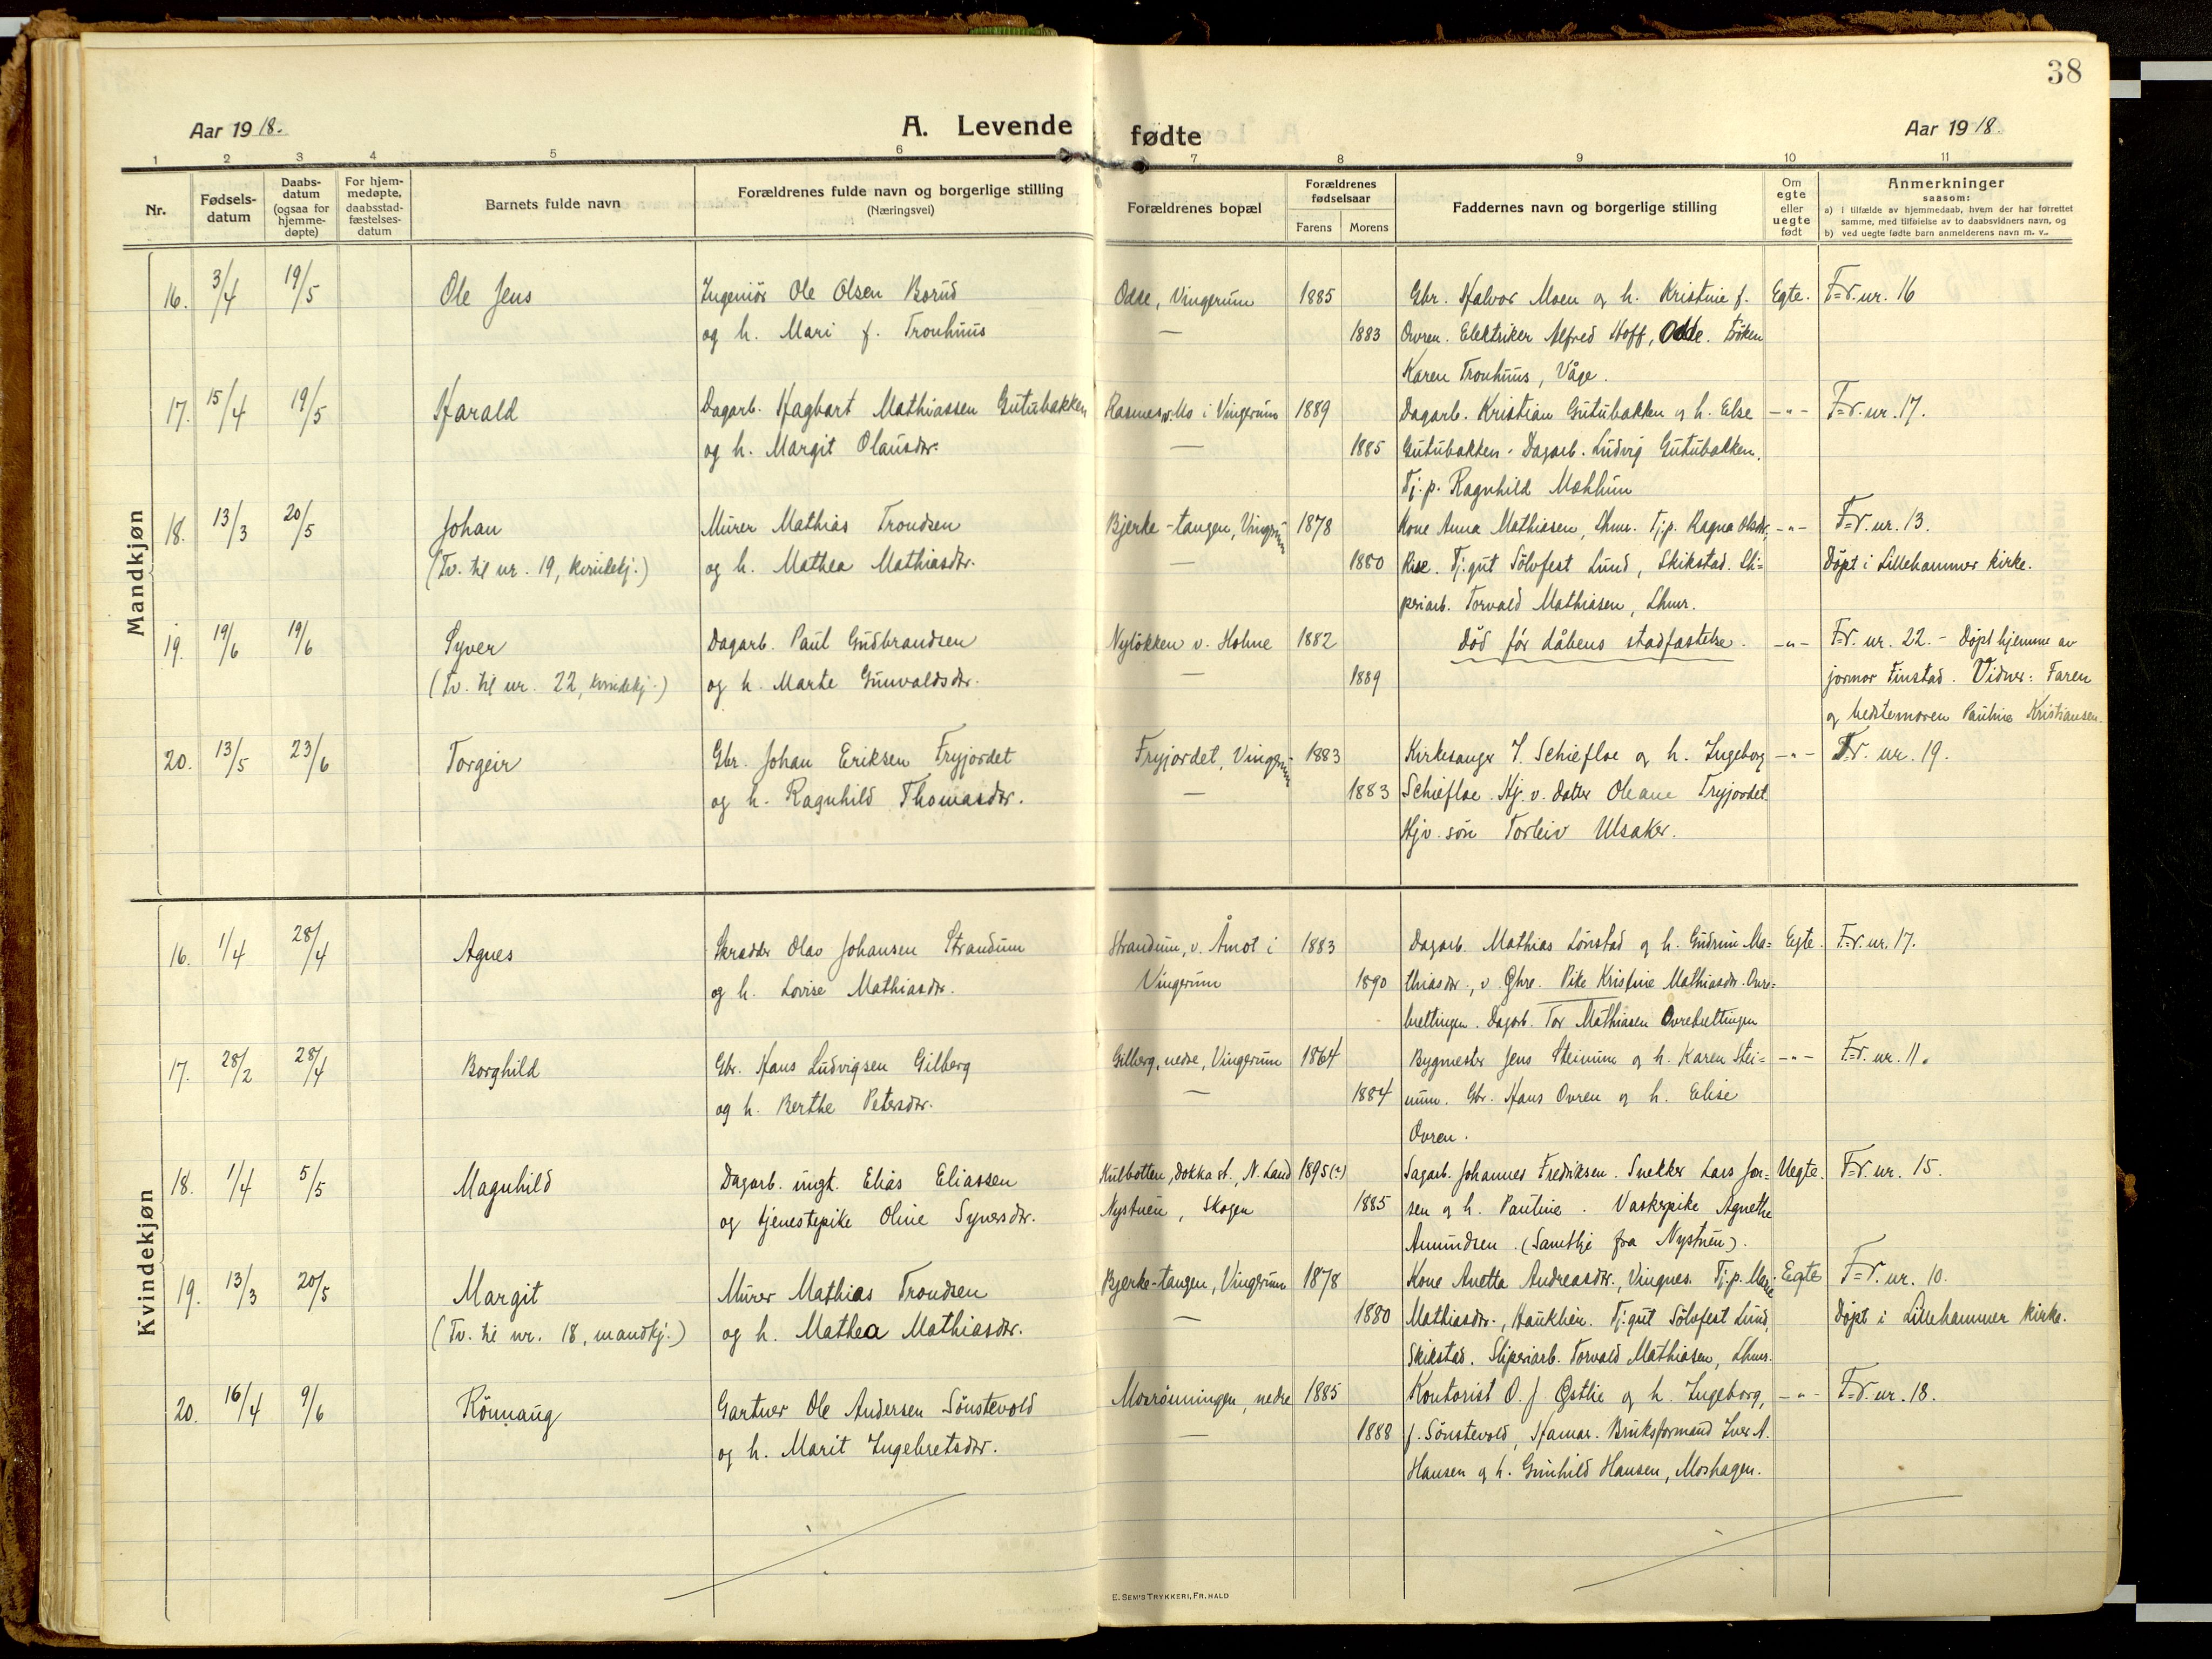 38
Aar 1918.
A. Levende fødte
Aar 1918.
1 2 3 4 5 6 7 8 9 10 11
Nr.
Fødsels-datum
Daabs-datum (ogsaa for hjemme-døpte)
For hjem-medøpte, daabsstad-fæstelses-datum
Barnets fulde navn
Forældrenes fulde navn og borgerlige stilling
(Næringsvei)
Forældrenes bopæl
Forældrenes fødselsaar
Farens Morens
Faddernes navn og borgerlige stilling
Om egte eller uegte født
Anmerkninger
saasom:
a) i tilfælde av hjemmedaab, hvem der har forrettet
samme, med tilføielse av to daabsvidners navn, og
b) ved uegte fødte barn anmelderens navn m. v.
Mandkjøn
16. 3/4 19/5 Ole Jens Ingeniör Ole Olsen Borud Odde, Vingerum 1885 Gbr. Halvor Moen og h. Kristine f. Egte. F=r. nr. 16
og h. Mari f. Tronhuus — 1883 Ovren. Elektriker Alfred Hoff, Odde. Fröken
Karen Tronhuus, Våge.
17. 15/4 19/5 Harald Dagarb. Hagbart Mathiassen Gutubakken Rasmes, v. Mo i Vingerum 1889 Dagarb. Kristian Gutubakken og h. Else -"- F=r. nr. 17.
og h. Margit Olausdr. — 1885 Gutubakken - Dagarb. Ludvig Gutubakken.
Tj. p. Ragnhild Mæhlum
18. 13/3 20/5 Johan Murer Mathias Trondsen Bjerke-tangen, Vingrum 1878 Kone Anna Mathiasen, Lhmr. Tj.p. Ragna Olsdr. -"- F=r. nr. 13.
(Tv. til nr. 19, kvindekj.) og h. Mathea Mathiasdr. — 1880 Rise. Tj.gut Sölvfest Lund, Skikstad. Sli=
Döpt i Lillehammer kirke.
periarb. Torvald Mathiasen, Lhmr.
19. 19/6 19/6 Syver Dagarb. Paul Gudbrandsen Nylökken v. Holme 1882 Död för dåbens stadfæstelse. -"- F=r. nr. 22. - Döpt hjemme av
(Tv. til nr. 22, kvindekj.) og h. Marte Gunvaldsdr. — 1889 jormor Finstad. Vidner: Faren
og bedstemoren Pauline Kristiansen.
20. 13/5 23/6 Torgeir Gbr. Johan Eriksen Fryjordet Fryjordet, Vingerum 1883 Kirkesanger J. Schiefloe og h. Ingeborg -"- F=r. nr. 19.
og h. Ragnhild Thomasdr. — 1883 Schiefloe. Hj. v. datter Oleane Fryjordet.
Hjv. sön Torleiv Ulsaker.
Kvindekjøn
16. 1/4 28/4 Agnes Skrædder Olav Johansen Strandum Strandum, v. Åmot i 1883 Dagarb. Mathias Lönstad og h. Gudrun Ma= Egte. F=r. nr. 17.
og h. Lovise Mathiasdr. Vingerum 1890 thiasdr., v. Pike Kristine Mathiasdr. Övre=
brettingen. Dagarb. Tor Mathiasen Övrebrettingen
17. 28/2 28/4 Borghild Gbr. Hans Ludvigsen Gilberg Gilberg, nedre, Vingerum 1864 Bygmester Jens Steinum og h. Karen Stei= -"- F=r. nr. 11.
og h. Berthe Petersdr. — 1884 num. Gbr. Hans Ovren og h. Elise
Ovren.
18. 1/4 5/5 Magnhild Dagarb. ungk. Elias Eliassen Kulbotten, Dokka st., N. Land 1895(?) Sagarb. Johannes Fredriksen. Snekker Lars Jor= Uegte. F=r. nr. 15.
og tjenestepike Oline Syversdr. Nystuen, Skogen 1885 sen og h. Pauline. Vaskepike Agnethe
Amundsen. (Samtlige fra Nystuen).
19. 13/3 20/5 Margit Murer Mathias Trondsen Bjerke-tangen, Vingerum 1878 Kone Anetta Andreasdr., Vingnes. Tj.p. Marie Egte F=r. nr. 10.
(Tv. til nr. 18, mandkj.) og h. Mathea Mathiasdr. — 1880 Mathiasdr., Haukhein. Tj.gut Sölvfest Lund,
Döpt i Lillehammer kirke.
Skikstad. Sliperiarb. Torvald Mathiasen, Lhmr.
20. 16/4 9/6 Rönnaug Gartner Ole Andersen Sönstevold Mosrönningen, nedre 1885 Kontorist O. J. Østlie og h. Ingeborg, -"- F=r. nr. 18.
og h. Marit Ingebretsdr. — 1888 f. Sönstevold, Hamar. Bruksformand Iver A.
Hansen og h. Gunhild Hansen, Moshagen.
E. SEM'S TRYKKERI, FR. HALD